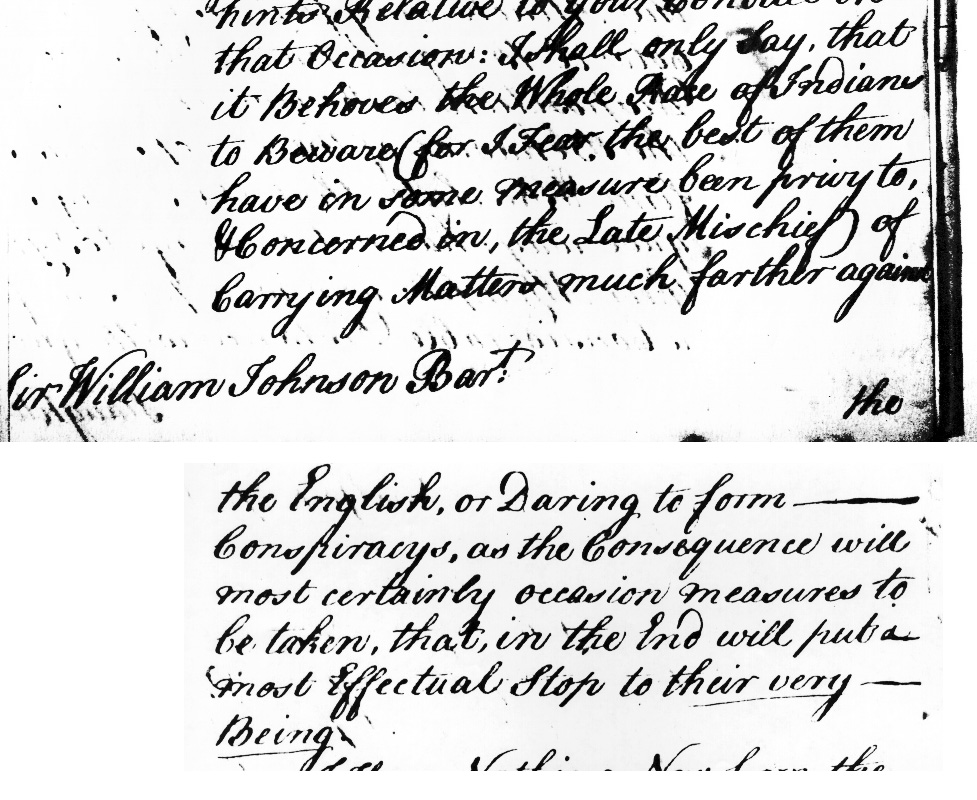 hints Relative to your Conduct on
that Occasion: I shall only Say, that
it Behoves the Whole Race of Indians
to Beware (for I Fear the best of them
have in some measure been privy to,
& Concerned in, the Late Mischief) of
Carrying Matters much farther against
Sir William Johnson Bart.
the
the English, or Daring to form —
Conspiracys, as the Consequence will
most certainly occasion measures to
be taken, that, in the End will put a
most Effectual Stop to their very —
Being.
Nothing New from the